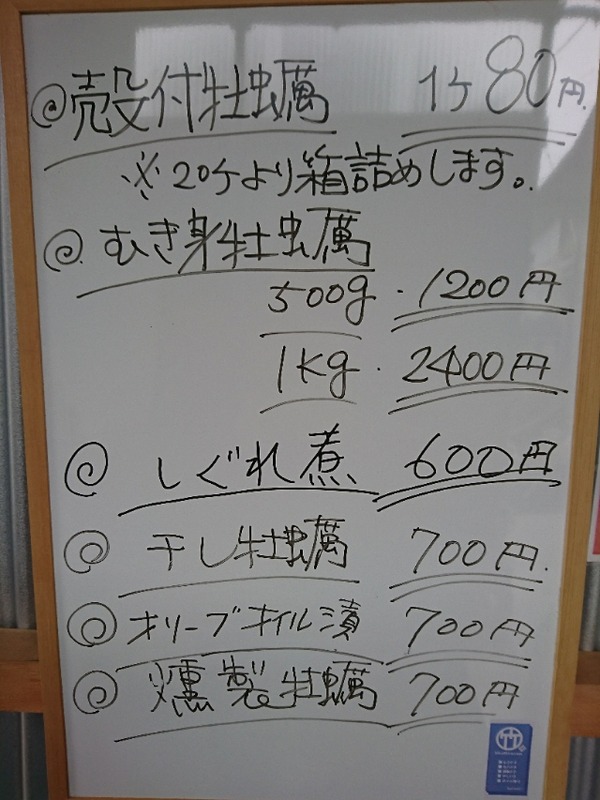 ◎殻付牡蠣 1ケ80円.
※20ケより箱詰めします。
◎むき身牡蠣
500g・1200円
1kg・2400円
◎しぐれ煮 600円
◎干し牡蠣 700円.
◎オリーブオイル漬 700円
◎燻製牡蠣 700円